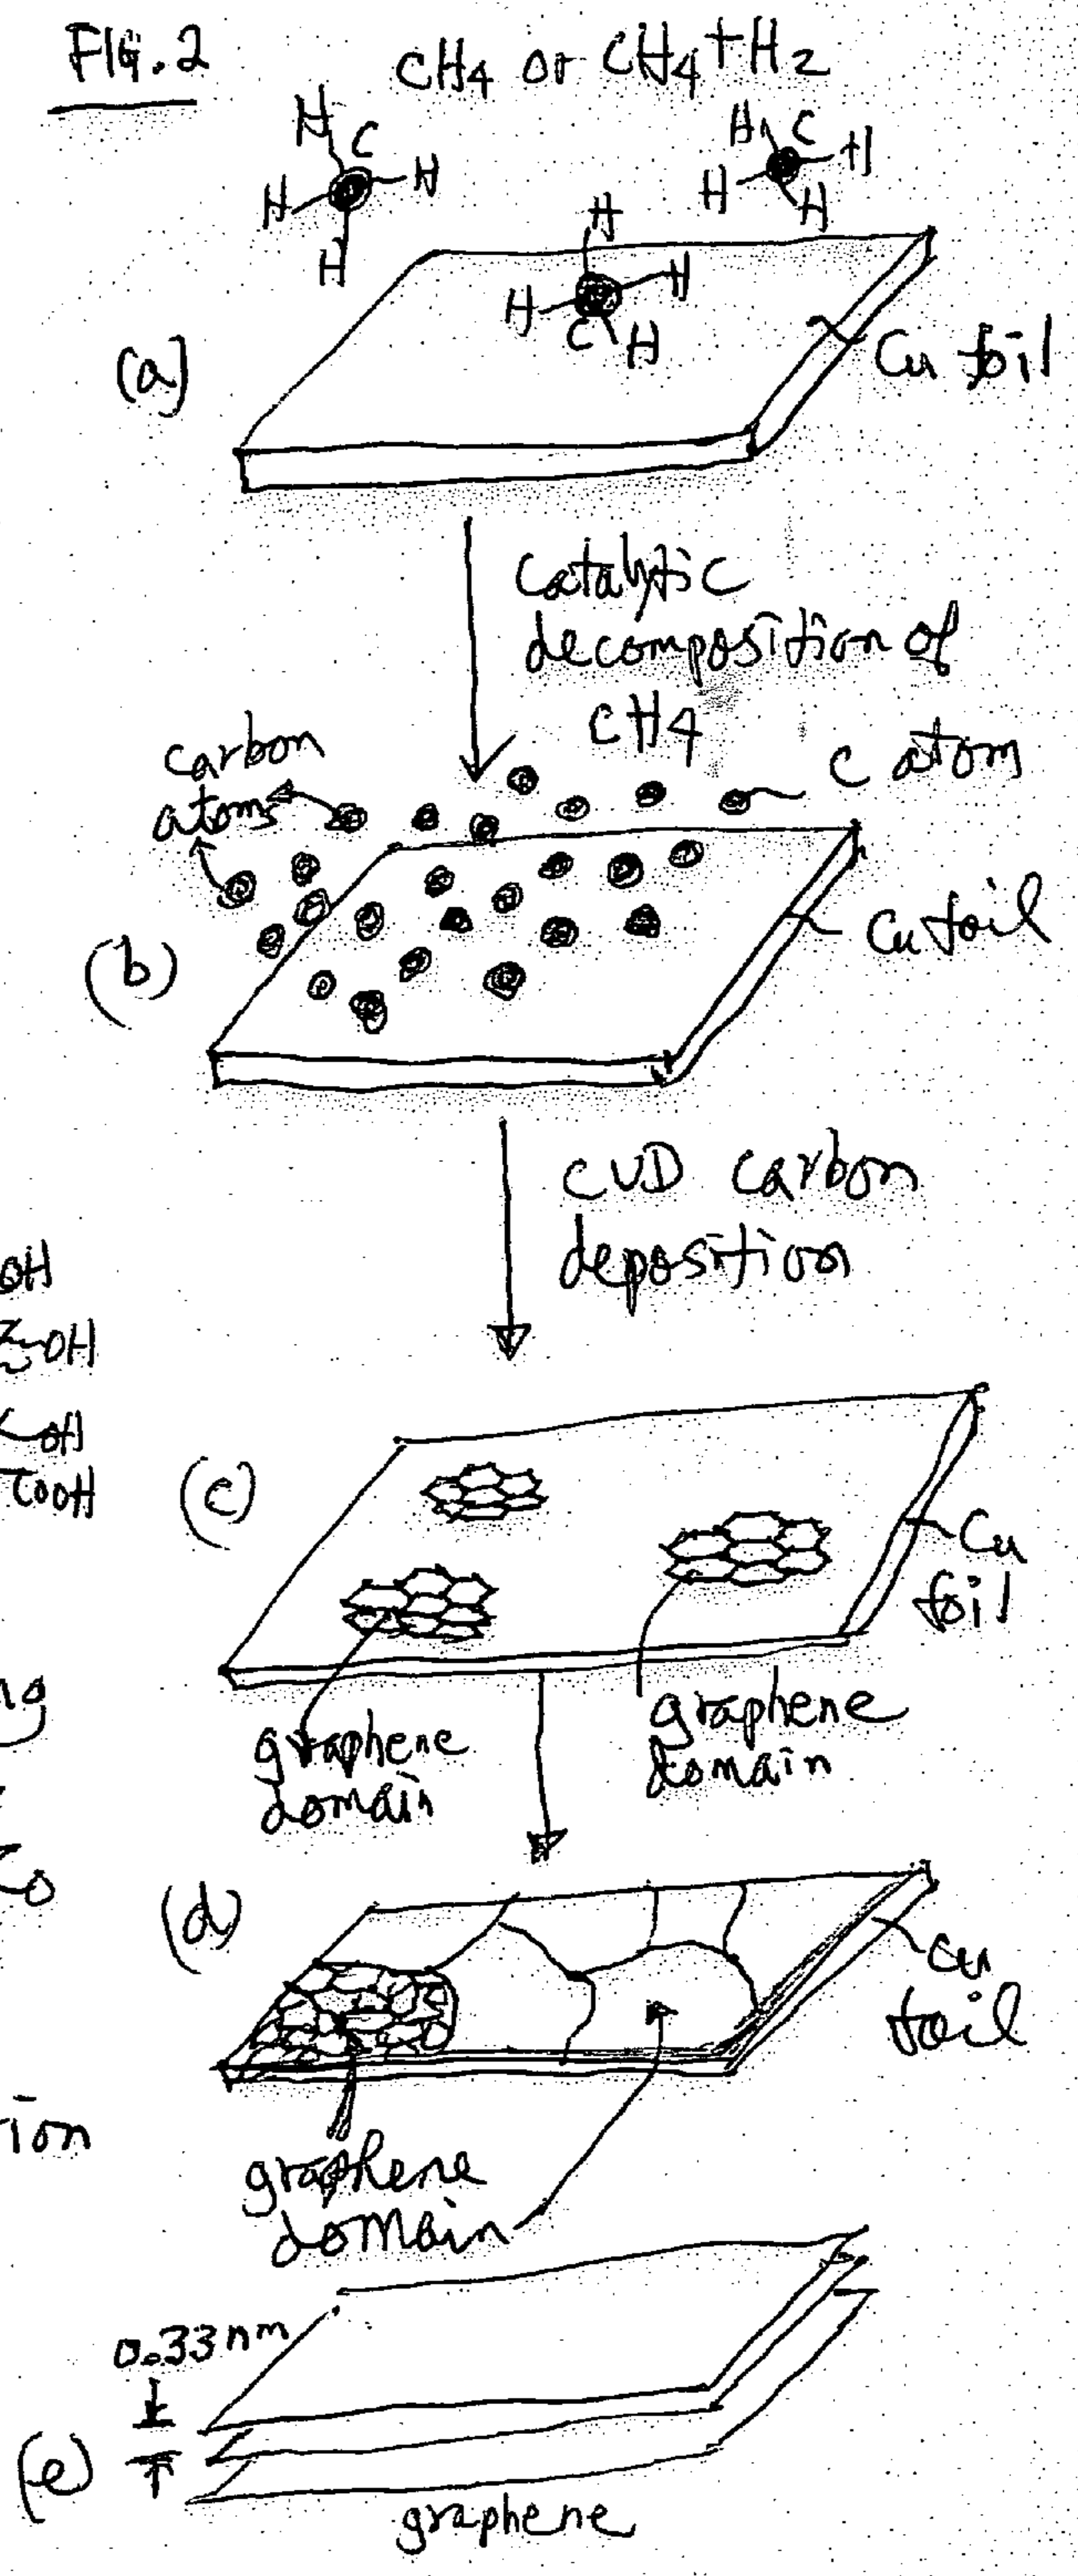 FIG. 2
CH4 or CH4+H2
H
C
H
H
H
H
C
H
H
H
H
H
H
C
H
(a)
Cu foil
catalytic
decomposition of
CH4
carbon
atoms
C atom
(b)
Cu foil
CVD carbon
deposition
OH
OH
OH
COOH
(c)
Cu
foil
graphene
domain
graphene
domain
(d)
Cu
foil
graphene
domain
0.33nm
(e)
graphene